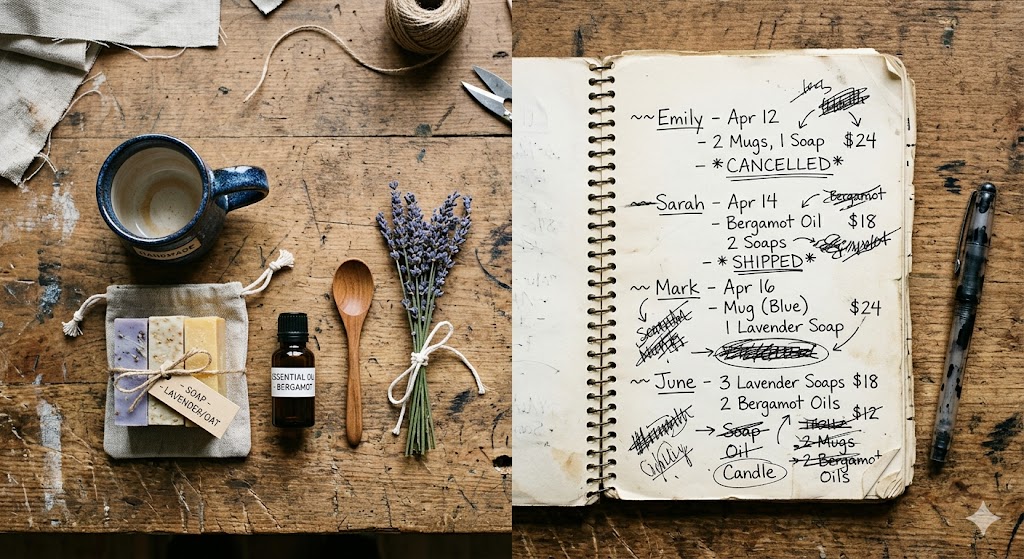 HANDMADE
- SOAP -
- LAVENDER/OAT
ESSENTIAL OIL
- BERGAMOT
~~ Emily - Apr 12
- 2 Mugs, 1 Soap $24
- *CANCELLED*
Sarah - Apr 14 Bergamot
- Bergamot Oil $18
2 Soaps
- *SHIPPED*
~~ Mark - Apr 16
- Mug (Blue) $24
1 Lavender Soap
~~ June - 3 Lavender Soaps $18
2 Bergamot Oils $12
Soap
Oil 2 Mugs
Candle 2 Bergamot
Oils